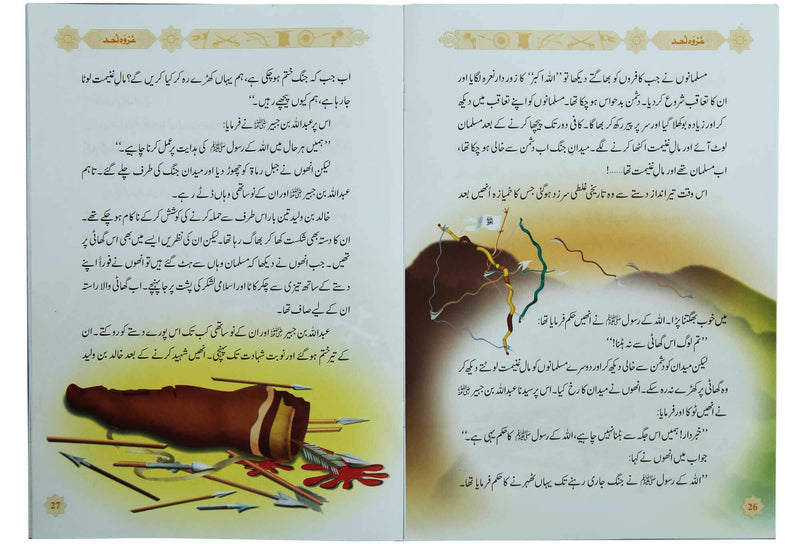 غزوہ اُحد
مسلمانوں نے جب کافروں کو بھاگتے دیکھا تو ’’اللہ اکبر‘‘ کا زوردار نعرہ لگایا اور
ان کا تعاقب شروع کردیا۔ دشمن بدحواس ہوچکا تھا۔ مسلمانوں کو اپنے تعاقب میں دیکھ
کر اور زیادہ بوکھلا گیا اور سر پر پیر رکھ کر بھاگا۔ کافی دور تک پیچھا کرنے کے بعد مسلمان
لوٹ آئے اور مالِ غنیمت اکٹھا کرنے لگے۔ میدانِ جنگ اب دشمن سے خالی ہوچکا تھا،
اب مسلمان تھے اور مالِ غنیمت تھا......!
اس وقت تیرانداز دستے سے وہ تاریخی غلطی سرزد ہوگئی جس کا خمیازہ انھیں بعد
میں خوب بھگتنا پڑا۔ اللہ کے رسول ﷺ نے انھیں حکم فرمایا تھا:
’’تم لوگ اس گھاٹی سے نہ ہٹنا!‘‘
لیکن میدان کو دشمن سے خالی دیکھ کر اور دوسرے مسلمانوں کو مالِ غنیمت لوٹتے دیکھ کر
وہ گھاٹی پر کھڑے نہ رہ سکے۔ انھوں نے میدان کا رخ کیا۔ اس پر سیدنا عبداللہ بن جبیر ؓ
نے انھیں ٹوکا اور فرمایا:
’’خبردار! ہمیں اس جگہ سے ہٹنا نہیں چاہیے، اللہ کے رسول ﷺ کا حکم یہی ہے۔‘‘
جواب میں انھوں نے کہا:
’’اللہ کے رسول ﷺ نے جنگ جاری رہنے تک یہاں ٹھہرنے کا حکم فرمایا تھا۔
26
غزوہ اُحد
اب جب کہ جنگ ختم ہوچکی ہے، ہم یہاں کھڑے رہ کر کیا کریں گے؟ مالِ غنیمت لوٹا
جارہا ہے، ہم کیوں پیچھے رہیں۔‘‘
اس پر عبداللہ بن جبیر ؓ نے فرمایا:
’’ہمیں ہر حال میں اللہ کے رسول ﷺ کی ہدایت پر عمل کرنا چاہیے۔‘‘
لیکن انھوں نے جبل رماۃ کو چھوڑ دیا اور میدان جنگ کی طرف چلے گئے۔ تاہم
عبداللہ بن جبیر ؓ اور ان کے نو ساتھی وہاں ڈٹے رہے۔
خالد بن ولید تین بار اس طرف سے حملہ کرنے کی کوشش کرکے ناکام ہوچکے تھے۔
ان کا دستہ بھی شکست کھا کر بھاگ رہا تھا۔ لیکن ان کی نظریں ایسے میں بھی اس گھاٹی پر
تھیں۔ جب انھوں نے دیکھا کہ مسلمان وہاں سے ہٹ گئے ہیں تو انھوں نے فوراً اپنے
دستے کے ساتھ تیزی سے چکر کاٹا اور اسلامی لشکر کی پشت پر جاپہنچے۔ اب گھاٹی والا راستہ
ان کے لیے صاف تھا۔
عبداللہ بن جبیر ؓ اور ان کے نو ساتھی کب تک اس پورے دستے کو روکتے۔ ان
کے تیر ختم ہوگئے اور نوبت شہادت تک پہنچی۔ انھیں شہید کرنے کے بعد خالد بن ولید
27